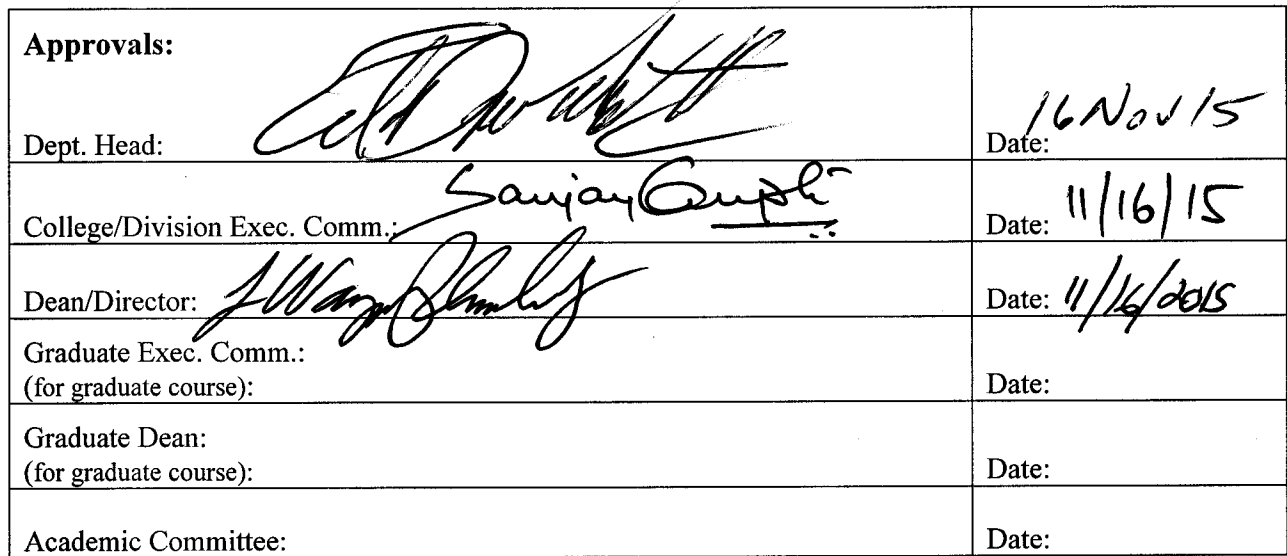 Approvals:
Dept. Head:
Date: 16 Nov 15
College/Division Exec. Comm.: Sanjay Gupta
Date: 11/16/15
Dean/Director: J Wayne
Date: 11/16/2015
Graduate Exec. Comm.:
(for graduate course):
Date:
Graduate Dean:
(for graduate course):
Date:
Academic Committee:
Date: